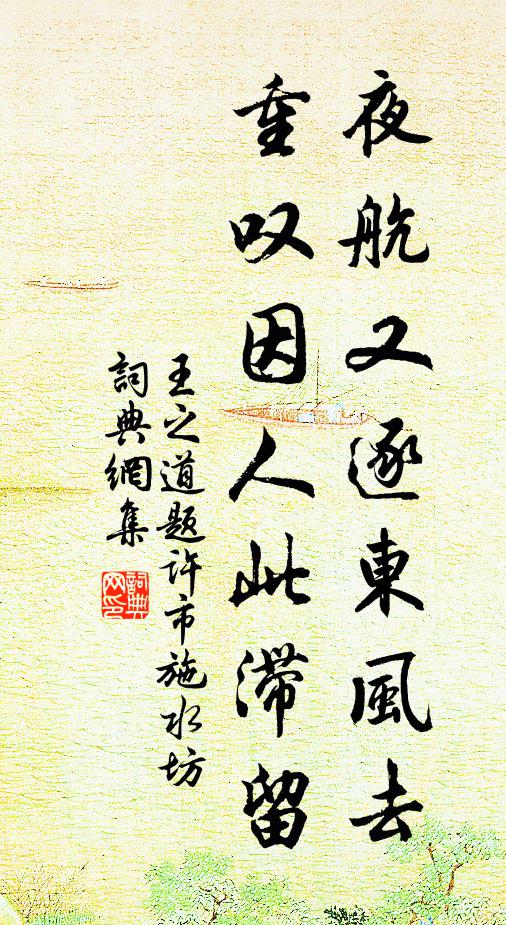 夜航又逐東風去
重叹因人此滯留
王之道题许市施水坊
詞典網集
詞典网印